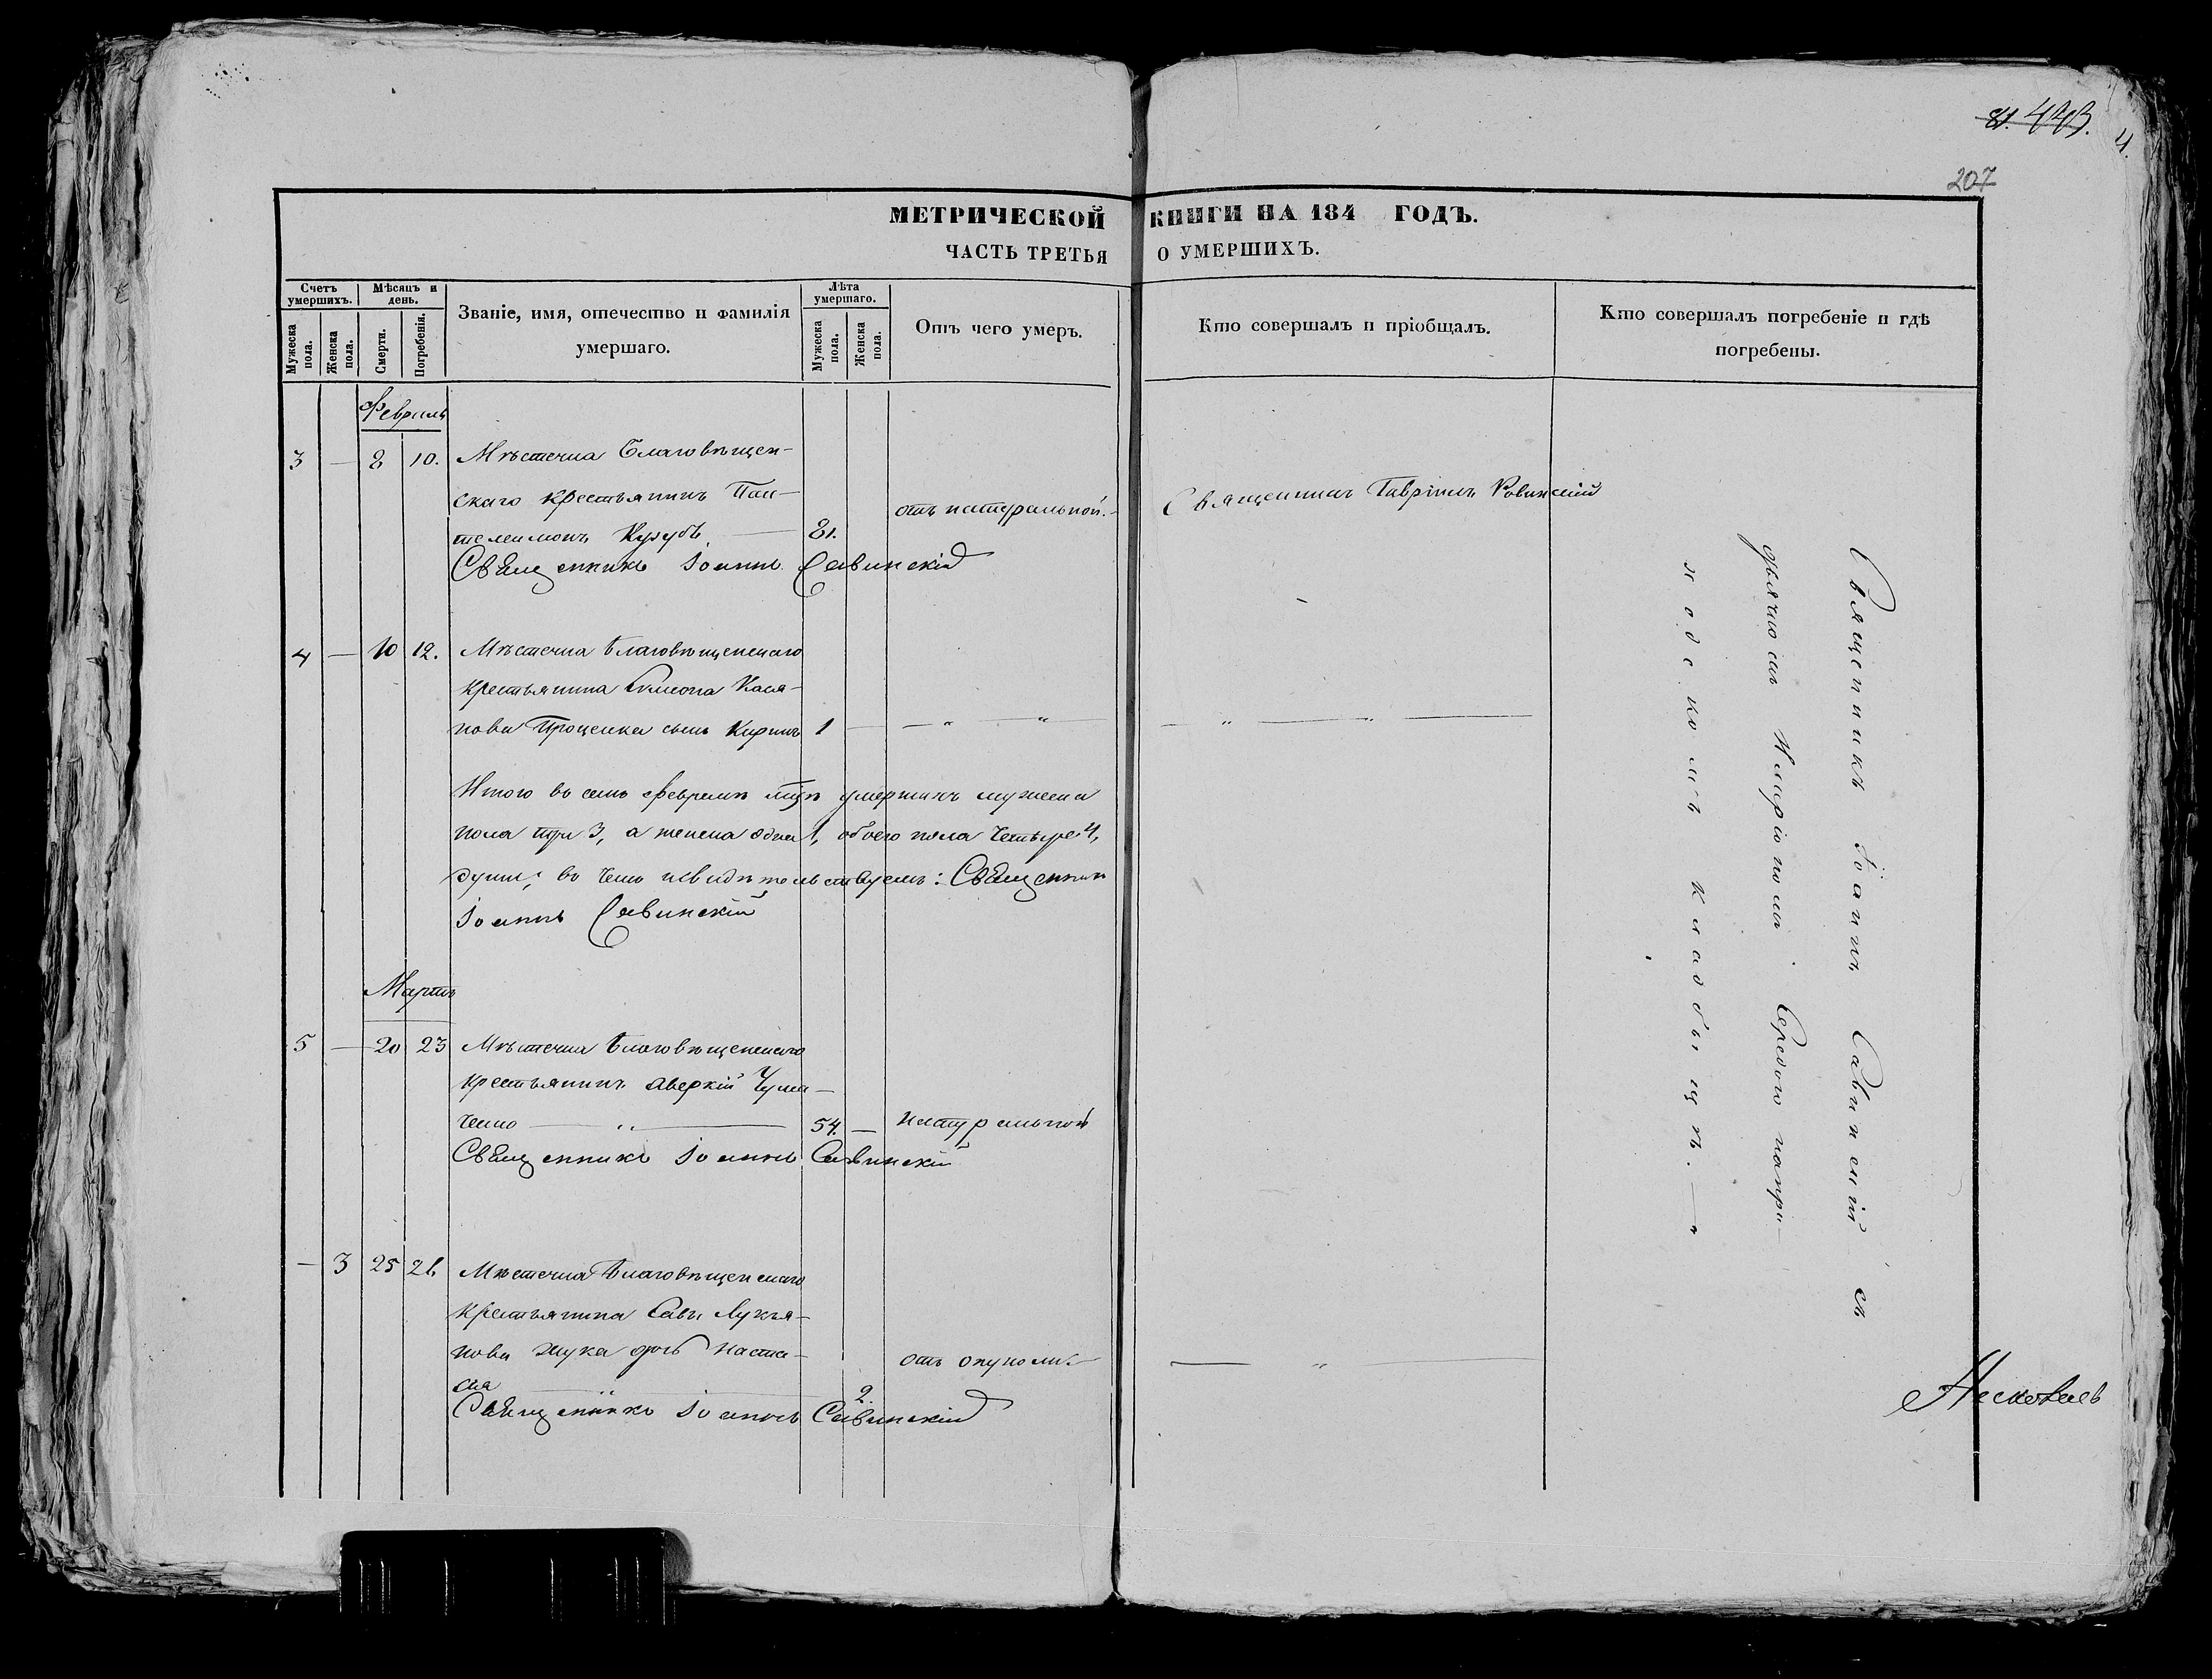 81. 443.
4.
207
МЕТРИЧЕСКОЙ КНИГИ НА 184 ГОДЪ.
ЧАСТЬ ТРЕТЬЯ О УМЕРШИХЪ.
Счетъ умершихъ.
Мужеска пола.
Женска пола.
Мѣсяцъ и день.
Смерти.
Погребенія.
Званіе, имя, отечество и фамилія умершаго.
Лѣта умершаго.
Мужеска пола.
Женска пола.
Отъ чего умеръ.
Кто совершалъ и пріобщалъ.
Кто совершалъ погребеніе и гдѣ погребены.
Февраль
3 — 8 10. Мѣстечка Благовѣщен-
скаго крестьянинъ Пан-
телеимонъ Кузубъ — 81. отъ натуральной. Священникъ Гавріилъ Ровинскій
Священникъ Іоаннъ Савинскій
4 — 10 12. Мѣстечка Благовѣщенскаго
крестьянина Симеона Кася-
нова Проценка сынъ Кирилъ 1 — — " — " — — " — " —
Итого въ семъ февралѣ мцѣ умершихъ мужеска
пола три 3, а женска одна 1, обоего пола четыре 4,
души; въ чемъ и свидѣтельствуемъ: Священникъ
Іоаннъ Савинскій
Мартъ
5 — 20 23 Мѣстечка Благовѣщенскаго
крестьянинъ Аверкій Чума-
ченко — " — 54. — натуральной
Священникъ Іоаннъ Савинскій
— 3 25 26 Мѣстечка Благовѣщенскаго
крестьянина Савы Лукъя-
нова Жука дочь Наста-
сія — 2. отъ — " —
Священникъ Іоаннъ Савинскій
Священникъ Іоаннъ Савинскій съ
дьячкомъ Иларіономъ на при-
ходскомъ кладбищѣ. —